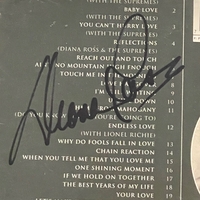 (WITH THE SUPREMES)
BABY LOVE 2
(WITH THE SUPREMES)
YOU CAN'T HURRY LOVE 3
(WITH THE SUPREMES)
REFLECTIONS 4
(DIANA ROSS & THE SUPREMES)
REACH OUT AND TOUCH
AIN'T NO MOUNTAIN HIGH ENOUGH
TOUCH ME IN
Diana Ross
I'M
LOVE
UPSIDE DOWN
MAHOGANY
(DO YOU KNOW
ENDLESS LOVE 12
(WITH LIONEL RICHIE)
WHY DO FOOLS FALL IN LOVE 13
CHAIN REACTION 14
WHEN YOU TELL ME THAT YOU LOVE ME 15
ONE SHINING MOMENT 16
IF WE HOLD ON TOGETHER 17
THE BEST YEARS OF MY LIFE 18
YOUR LOVE 19